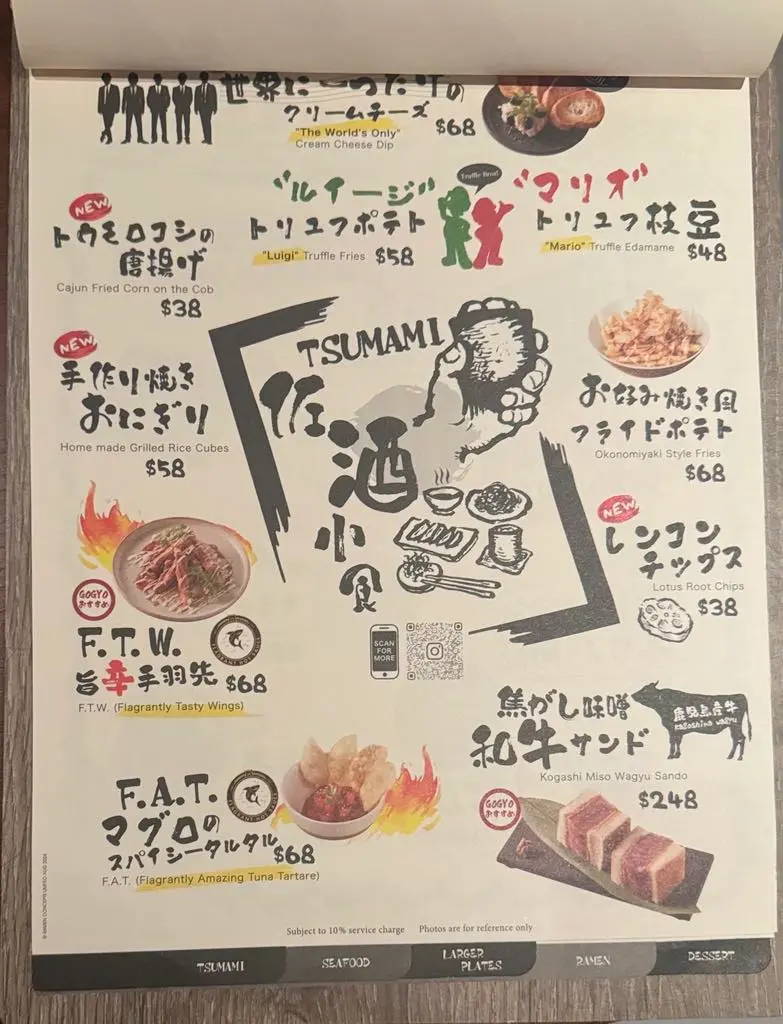 世界に一つだけの
クリームチーズ
"The World's Only"
Cream Cheese Dip
$68
NEW
トウモロコシの
唐揚げ
Cajun Fried Corn on the Cob
$38
"ルイージ"
トリュフポテト
"Luigi" Truffle Fries $58
Truffle Bros!
"マリオ"
トリュフ枝豆
"Mario" Truffle Edamame $48
NEW
手作り焼き
おにぎり
Home made Grilled Rice Cubes
$58
TSUMAMI
佐
酒
小
食
お好み焼き風
フライドポテト
Okonomiyaki Style Fries
$68
NEW
レンコン
チップス
Lotus Root Chips
$38
GOGYO
おすすめ
F.T.W.
旨辛手羽先 $68
F.T.W. (Flagrantly Tasty Wings)
SCAN
FOR
MORE
焦がし味噌
和牛サンド
鹿児島産牛
kagoshima wagyu
Kogashi Miso Wagyu Sando
$248
GOGYO
おすすめ
F.A.T.
マグロの
スパイシータルタル
$68
F.A.T. (Flagrantly Amazing Tuna Tartare)
© RAMEN CONCEPTS LIMITED AUG 2024
Subject to 10% service charge Photos are for reference only
TSUMAMI
SEAFOOD
LARGER
PLATES
RAMEN
DESSERT